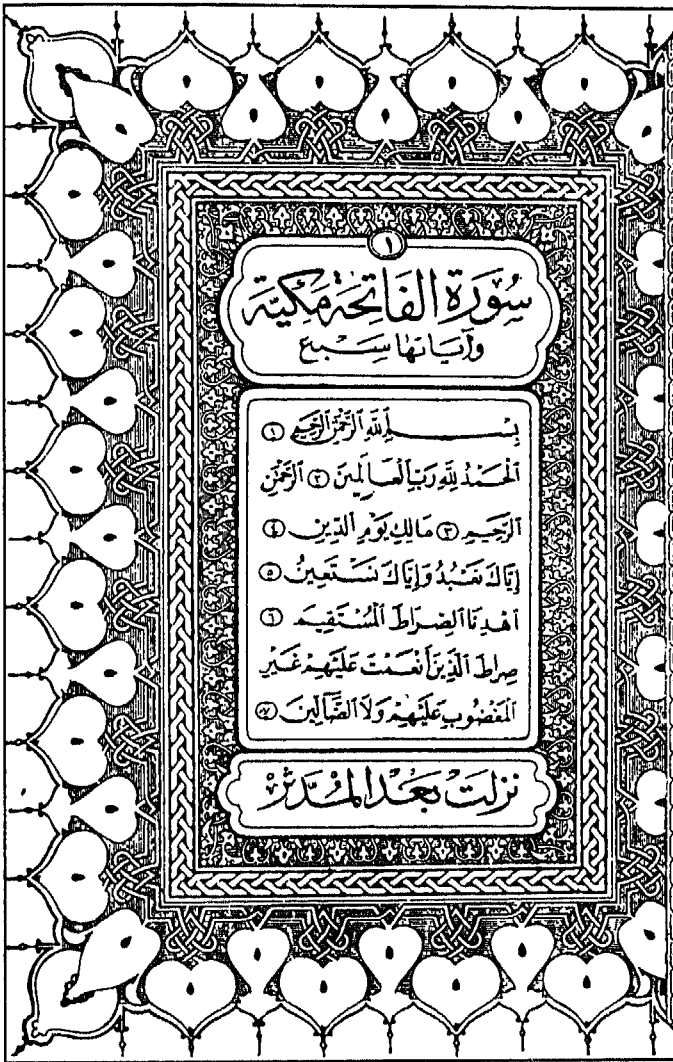 ١
سُورَةُ الفَاتِحَة مَكِيَّة
وَآيَاتهَا سَبْع
بِسْمِ ٱللَّهِ ٱلرَّحْمَٰنِ ٱلرَّحِيمِ ١
ٱلْحَمْدُ لِلَّهِ رَبِّ ٱلْعَالَمِينَ ٢ ٱلرَّحْمَٰنِ
ٱلرَّحِيمِ ٣ مَالِكِ يَوْمِ ٱلدِّينِ ٤
إِيَّاكَ نَعْبُدُ وَإِيَّاكَ نَسْتَعِينُ ٥
ٱهْدِنَا ٱلصِّرَاطَ ٱلْمُسْتَقِيمَ ٦
صِرَاطَ ٱلَّذِينَ أَنْعَمْتَ عَلَيْهِمْ غَيْرِ
ٱلْمَغْضُوبِ عَلَيْهِمْ وَلَا ٱلضَّآلِّينَ ٧
نَزَلَتْ بَعْدَ المُدَّثِّر